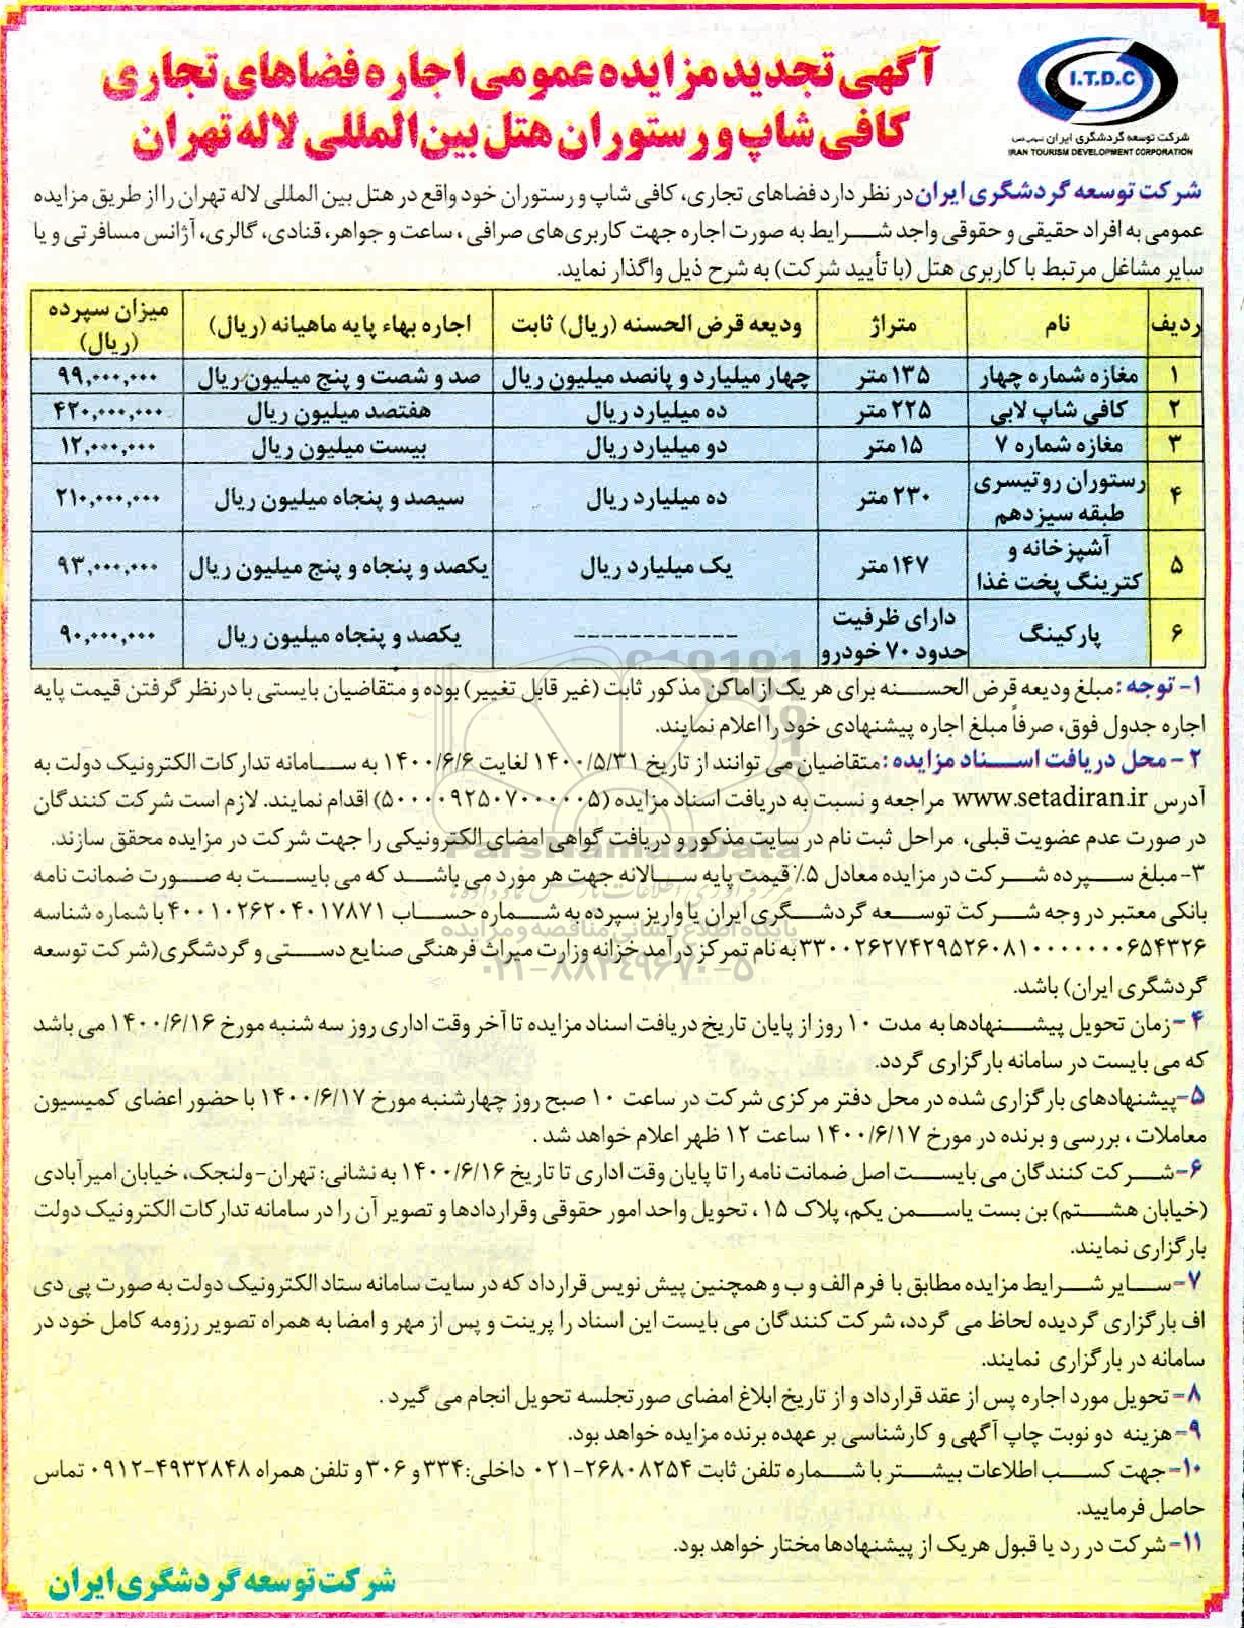 آگهی تجدید مزایده عمومی اجاره فضاهای تجاری
کافی شاپ و رستوران هتل بین المللی لاله تهران
I.T.D.C
شرکت توسعه گردشگری ایران
IRAN TOURISM DEVELOPMENT CORPORATION
شرکت توسعه گردشگری ایران در نظر دارد فضاهای تجاری، کافی شاپ و رستوران خود واقع در هتل بین المللی لاله تهران را از طریق مزایده
عمومی به افراد حقیقی و حقوقی واجد شرایط به صورت اجاره جهت کاربری‌های صرافی، ساعت و جواهر، قنادی، گالری، آژانس مسافرتی و یا
سایر مشاغل مرتبط با کاربری هتل (با تأیید شرکت) به شرح ذیل واگذار نماید.
ردیف نام متراژ ودیعه قرض الحسنه (ریال) ثابت اجاره بهاء پایه ماهیانه (ریال) میزان سپرده (ریال)
۱ مغازه شماره چهار ۱۳۵ متر چهار میلیارد و پانصد میلیون ریال صد و شصت و پنج میلیون ریال ۹۹,۰۰۰,۰۰۰
۲ کافی شاپ لابی ۲۲۵ متر ده میلیارد ریال هفتصد میلیون ریال ۴۲۰,۰۰۰,۰۰۰
۳ مغازه شماره ۷ ۱۵ متر دو میلیارد ریال بیست میلیون ریال ۱۲,۰۰۰,۰۰۰
۴ رستوران روتیسری طبقه سیزدهم ۲۳۰ متر ده میلیارد ریال سیصد و پنجاه میلیون ریال ۲۱۰,۰۰۰,۰۰۰
۵ آشپزخانه و کترینگ پخت غذا ۱۴۷ متر یک میلیارد ریال یکصد و پنجاه و پنج میلیون ریال ۹۳,۰۰۰,۰۰۰
۶ پارکینگ دارای ظرفیت حدود ۷۰ خودرو ------------ یکصد و پنجاه میلیون ریال ۹۰,۰۰۰,۰۰۰
۱- توجه: مبلغ ودیعه قرض الحسنه برای هر یک از اماکن مذکور ثابت (غیر قابل تغییر) بوده و متقاضیان بایستی با در نظر گرفتن قیمت پایه
اجاره جدول فوق، صرفاً مبلغ اجاره پیشنهادی خود را اعلام نمایند.
۲- محل دریافت اسناد مزایده: متقاضیان می توانند از تاریخ ۱۴۰۰/۵/۳۱ لغایت ۱۴۰۰/۶/۶ به سامانه تدارکات الکترونیک دولت به
آدرس www.setadiran.ir مراجعه و نسبت به دریافت اسناد مزایده (۵۰۰۰۰۹۲۵۰۷۰۰۰۰۰۵) اقدام نمایند. لازم است شرکت کنندگان
در صورت عدم عضویت قبلی، مراحل ثبت نام در سایت مذکور و دریافت گواهی امضای الکترونیکی را جهت شرکت در مزایده محقق سازند.
۳- مبلغ سپرده شرکت در مزایده معادل ۵٪ قیمت پایه سالانه جهت هر مورد می باشد که می بایست به صورت ضمانت نامه
بانکی معتبر در وجه شرکت توسعه گردشگری ایران یا واریز سپرده به شماره حساب ۴۰۰۱۰۲۶۲۰۴۰۱۷۸۷۱ با شماره شناسه
۳۳۰۰۲۶۲۷۴۲۹۵۲۶۰۸۱۰۰۰۰۰۰۰۶۵۴۳۲۶ به نام تمرکز درآمد خزانه وزارت میراث فرهنگی صنایع دستی و گردشگری (شرکت توسعه
گردشگری ایران) باشد.
۴- زمان تحویل پیشنهادها به مدت ۱۰ روز از پایان تاریخ دریافت اسناد مزایده تا آخر وقت اداری روز سه شنبه مورخ ۱۴۰۰/۶/۱۶ می باشد
که می بایست در سامانه بارگزاری گردد.
۵- پیشنهادهای بارگزاری شده در محل دفتر مرکزی شرکت در ساعت ۱۰ صبح روز چهارشنبه مورخ ۱۴۰۰/۶/۱۷ با حضور اعضای کمیسیون
معاملات، بررسی و برنده در مورخ ۱۴۰۰/۶/۱۷ ساعت ۱۲ ظهر اعلام خواهد شد.
۶- شرکت کنندگان می بایست اصل ضمانت نامه را تا پایان وقت اداری تا تاریخ ۱۴۰۰/۶/۱۶ به نشانی: تهران- ولنجک، خیابان امیرآبادی
(خیابان هشتم) بن بست یاسمن یکم، پلاک ۱۵، تحویل واحد امور حقوقی و قراردادها و تصویر آن را در سامانه تدارکات الکترونیک دولت
بارگزاری نمایند.
۷- سایر شرایط مزایده مطابق با فرم الف و ب و همچنین پیش نویس قرارداد که در سایت سامانه ستاد الکترونیک دولت به صورت پی دی
اف بارگزاری گردیده لحاظ می گردد، شرکت کنندگان می بایست این اسناد را پرینت و پس از مهر و امضا به همراه تصویر رزومه کامل خود در
سامانه در بارگزاری نمایند.
۸- تحویل مورد اجاره پس از عقد قرارداد و از تاریخ ابلاغ امضای صورتجلسه تحویل انجام می گیرد.
۹- هزینه دو نوبت چاپ آگهی و کارشناسی بر عهده برنده مزایده خواهد بود.
۱۰- جهت کسب اطلاعات بیشتر با شماره تلفن ثابت ۲۶۸۰۸۲۵۴-۰۲۱ داخلی: ۳۳۴ و ۳۰۶ و تلفن همراه ۴۹۳۲۸۴۸-۰۹۱۲ تماس
حاصل فرمایید.
۱۱- شرکت در رد یا قبول هریک از پیشنهادها مختار خواهد بود.
شرکت توسعه گردشگری ایران
ParsNamadData
پایگاه اطلاع رسانی مناقصه و مزایده
۰۲۱-۸۸۳۴۹۶۷۰-۵